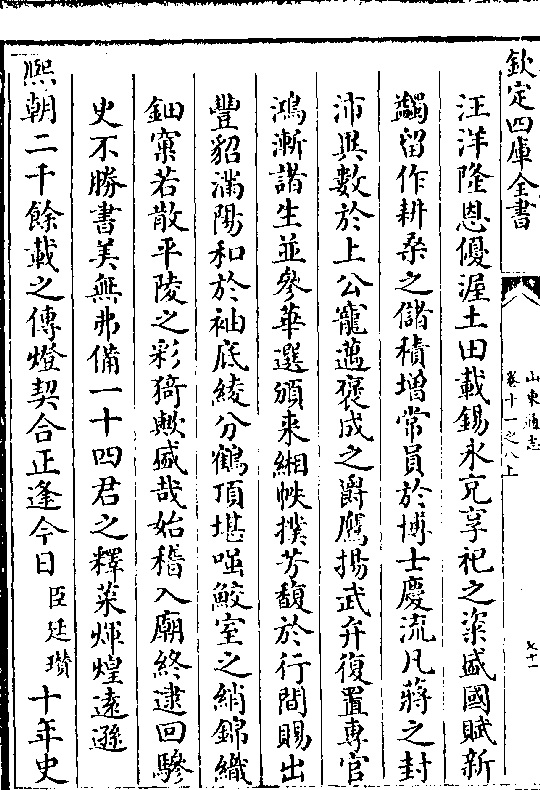 欽定四庫全書
山東通志
卷十一之八上
七十一
汪洋隆恩優渥土田載錫永充享祀之粢盛國賦新
蠲留作耕桑之儲積增常員於博士慶流凡蔣之封
沛異數於上公寵邁褒成之爵鷹揚武弁復置專官
鴻漸諸生並參華選頒来緗帙撲芳馥於行間賜出
豐貂滿陽和於袖底綾分鶴頂堪嗤鮫室之綃錦織
鈿窠若散平陵之彩猗歟盛哉始稽入廟終逮回驂
史不勝書美無弗備一十四君之釋菜煇煌遠遜
熈朝二千餘載之傳燈契合正逢今日臣廷瓚十年史